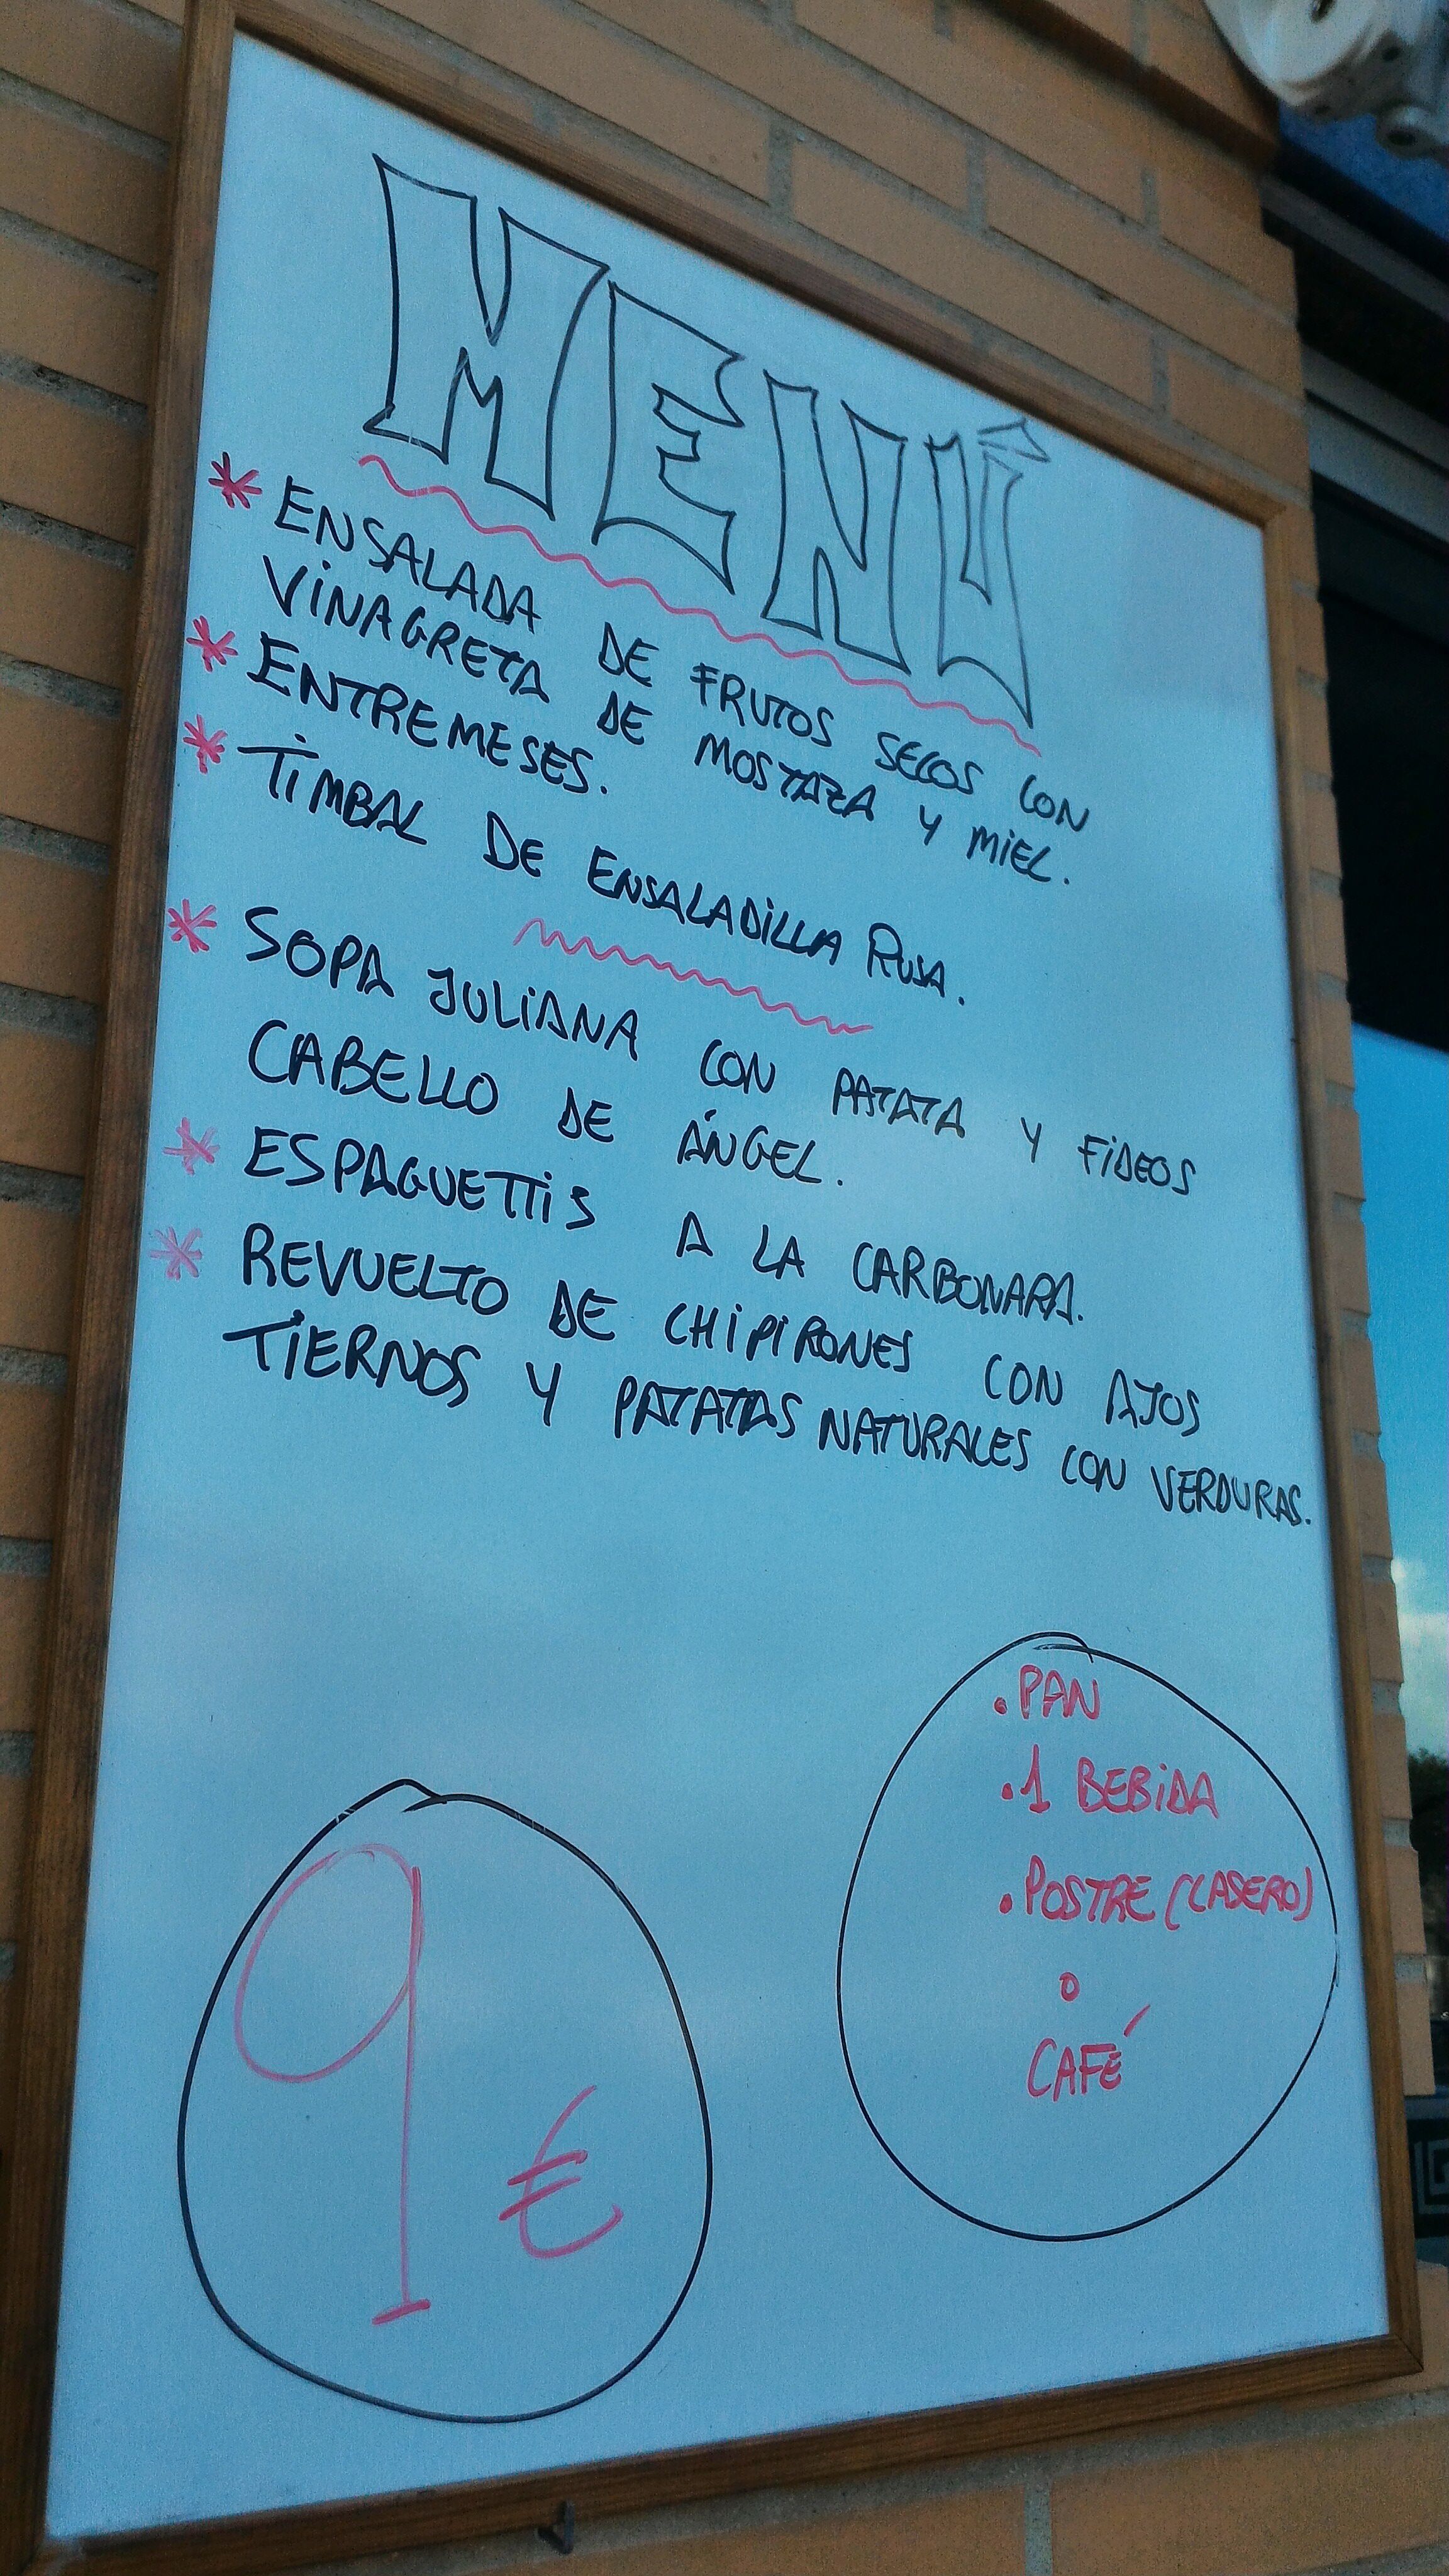 MENÚ
* ENSALADA DE FRUTOS SECOS CON
VINAGRETA DE MOSTAZA Y MIEL.
* ENTREMESES.
* TIMBAL DE ENSALADILLA RUSA.
* SOPA JULIANA CON PATATA Y FIDEOS
CABELLO DE ÁNGEL.
* ESPAGUETTIS A LA CARBONARA.
* REVUELTO DE CHIPIRONES CON AJOS
TIERNOS Y PATATAS NATURALES CON VERDURAS.
. PAN
. 1 BEBIDA
. POSTRE (CASERO)
o
CAFÉ
9 €